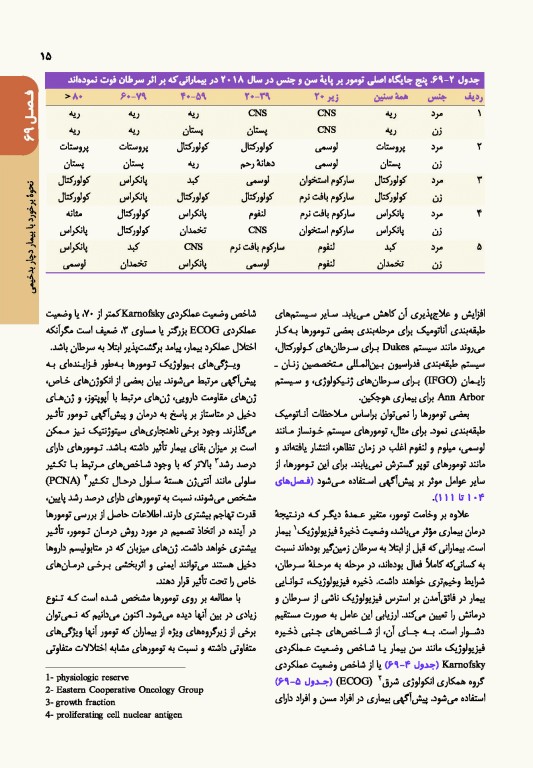 ۱۵
فصل ۶۹
نحوهٔ برخورد با بیمار دچار بدخیمی
جدول ۲-۶۹. پنج جایگاه اصلی تومور بر پایهٔ سن و جنس در سال ۲۰۱۸ در بیمارانی که بر اثر سرطان فوت نموده‌اند
ردیف جنس همهٔ سنین زیر ۲۰ ۲۰-۳۹ ۴۰-۵۹ ۶۰-۷۹ ۸۰ <
۱ مرد ریه CNS CNS ریه ریه ریه
زن ریه CNS پستان پستان ریه ریه
۲ مرد پروستات لوسمی کولورکتال کولورکتال پروستات پروستات
زن پستان لوسمی دهانهٔ رحم ریه پستان پستان
۳ مرد کولورکتال سارکوم استخوان لوسمی کبد پانکراس کولورکتال
زن کولورکتال سارکوم بافت نرم کولورکتال کولورکتال پانکراس کولورکتال
۴ مرد پانکراس سارکوم بافت نرم لنفوم پانکراس کولورکتال مثانه
زن پانکراس سارکوم استخوان CNS تخمدان کولورکتال پانکراس
۵ مرد کبد لنفوم سارکوم بافت نرم CNS کبد پانکراس
زن تخمدان لنفوم لوسمی پانکراس تخمدان لوسمی
افزایش و علاج‌پذیری آن کاهش می‌یابد. سایر سیستم‌های
طبقه‌بندی آناتومیک برای مرحله‌بندی بعضی تومورها به‌کار
می‌روند مانند سیستم Dukes برای سرطان‌های کولورکتال،
سیستم طبقه‌بندی فدراسیون بین‌المللی متخصصین زنان ـ
زایمان (IFGO) برای سرطان‌های ژنیکولوژی، و سیستم
Ann Arbor برای بیماری هوجکین.
بعضی تومورها را نمی‌توان براساس ملاحظات آناتومیک
طبقه‌بندی نمود. برای مثال، تومورهای سیستم خونساز مانند
لوسمی، میلوم و لنفوم اغلب در زمان تظاهر، انتشار یافته‌اند و
مانند تومورهای توپر گسترش نمی‌یابند. برای این تومورها، از
سایر عوامل موثر بر پیش‌آگهی استفاده می‌شود (فصل‌های
۱۰۴ تا ۱۱۱).
علاوه بر وخامت تومور، متغیر عمدهٔ دیگر که درنتیجهٔ
درمان بیماری مؤثر می‌باشد، وضعیت ذخیرهٔ فیزیولوژیک۱ بیمار
است. بیمارانی که قبل از ابتلا به سرطان زمین‌گیر بوده‌اند نسبت
به کسانی‌که کاملاً فعال بوده‌اند، در مرحله به مرحلهٔ سرطان،
شرایط وخیم‌تری خواهند داشت. ذخیره فیزیولوژیک، توانایی
بیمار در فائق‌آمدن بر استرس فیزیولوژیک ناشی از سرطان و
درمانش را تعیین می‌کند. ارزیابی این عامل به صورت مستقیم
دشوار است. به جای آن، از شاخص‌های جنبی ذخیره
فیزیولوژیک مانند سن بیمار یا شاخص وضعیت عملکردی
Karnofsky (جدول ۴-۶۹) یا از شاخص وضعیت عملکردی
گروه همکاری انکولوژی شرق۲ (ECOG) (جدول ۵-۶۹)
استفاده می‌شود. پیش‌آگهی بیماری در افراد مسن و افراد دارای
شاخص وضعیت عملکردی Karnofsky کمتر از ۷۰، یا وضعیت
عملکردی ECOG بزرگتر یا مساوی ۳، ضعیف است مگرآنکه
اختلال عملکرد بیمار، پیامد برگشت‌پذیر ابتلا به سرطان باشد.
ویژگی‌های بیولوژیک تومورها به‌طور فزاینده‌ای به
پیش‌آگهی مرتبط می‌شوند. بیان بعضی از انکوژن‌های خاص،
ژن‌های مقاومت دارویی، ژن‌های مرتبط با آپوپتوز، و ژن‌های
دخیل در متاستاز بر پاسخ به درمان و پیش‌آگهی تومور تأثیر
می‌گذارند. وجود برخی ناهنجاری‌های سیتوژنتیک نیز ممکن
است بر میزان بقای بیمار تأثیر داشته باشد. تومورهای دارای
درصد رشد۳ بالاتر که با وجود شاخص‌های مرتبط با تکثیر
سلولی مانند آنتی‌ژن هستهٔ سلول درحال تکثیر۴ (PCNA)
مشخص می‌شوند، نسبت به تومورهای دارای درصد رشد پایین،
قدرت تهاجم بیشتری دارند. اطلاعات حاصل از بررسی تومورها
در آینده در اتخاذ تصمیم در مورد روش درمان تومور، تأثیر
بیشتری خواهد داشت. ژن‌های میزبان که در متابولیسم داروها
دخیل هستند می‌توانند ایمنی و اثربخشی برخی درمان‌های
خاص را تحت تأثیر قرار دهند.
با مطالعه بر روی تومورها مشخص شده است که تنوع
زیادی در بین آنها دیده می‌شود. اکنون می‌دانیم که نمی‌توان
برخی از زیرگروه‌های ویژه از بیماران که تومور آنها ویژگی‌های
متفاوتی داشته و نسبت به تومورهای مشابه اختلالات متفاوتی
1- physiologic reserve
2- Eastern Cooperative Oncology Group
3- growth fraction
4- proliferating cell nuclear antigen